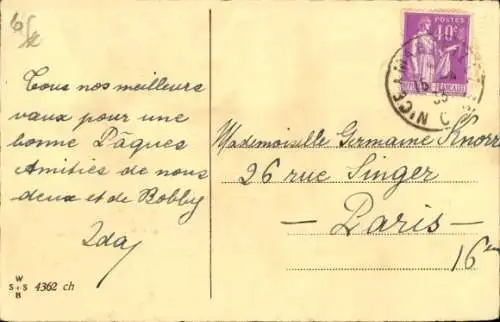 Tous nos meilleurs
vœux pour une
bonne Pâques
Amitiés de nous
deux et de Bobby
Ida
W
S + S
B
4362 ch
POSTES
40c
NICE
Mademoiselle Germaine Knorr
26 rue Singer
— Paris —
16em